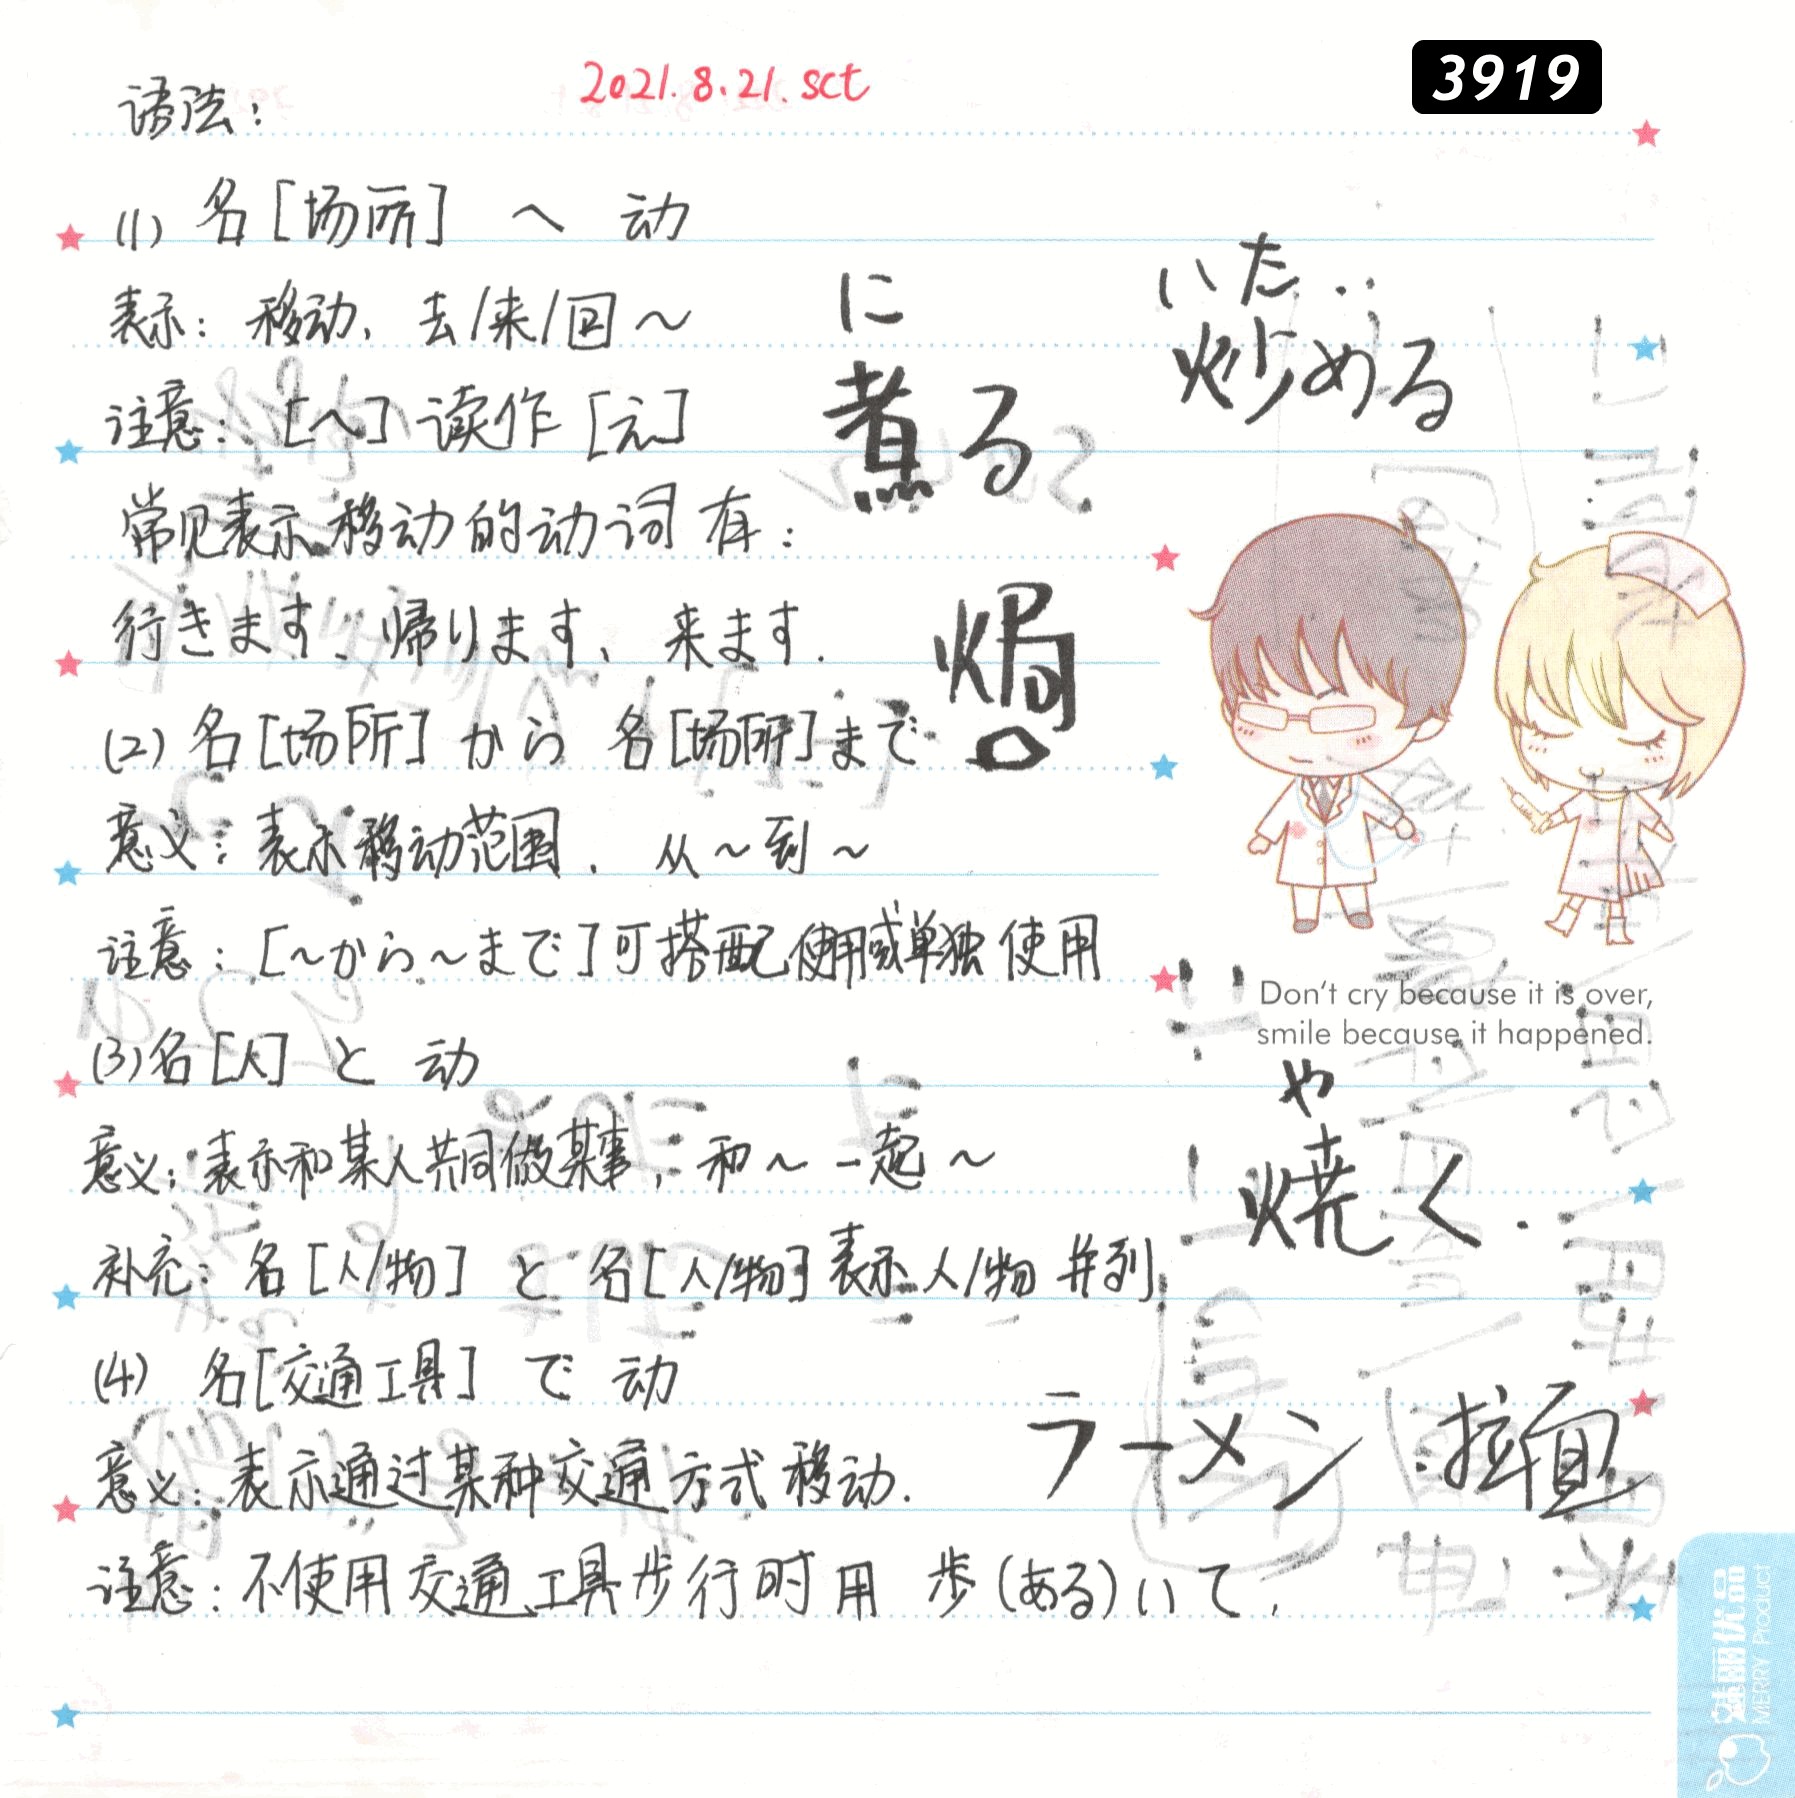 2021.8.21.sct
3919
语法：
(1) 名［场所］ へ 动
表示：移动，去/来/回～
注意：［へ］读作［え］
常见表示移动的动词有：
行きます、帰ります、来ます.
(2) 名［场所］から 名［场所］まで
意义：表示移动范围. 从～到～
注意：［～から～まで］可搭配使用或单独使用
(3) 名［人］ と 动
意义：表示和某人共同做某事，和～一起～
补充：名［人/物］ と 名［人/物］表示人/物 并列
(4) 名［交通工具］ で 动
意义：表示通过某种交通方式移动.
注意：不使用交通工具步行时用 歩(ある)いて.
に
煮る
いた..
炒める
焗
Don't cry because it is over,
smile because it happened.
や
焼く.
ラーメン 拉面
魅丽优品
MERRY Product